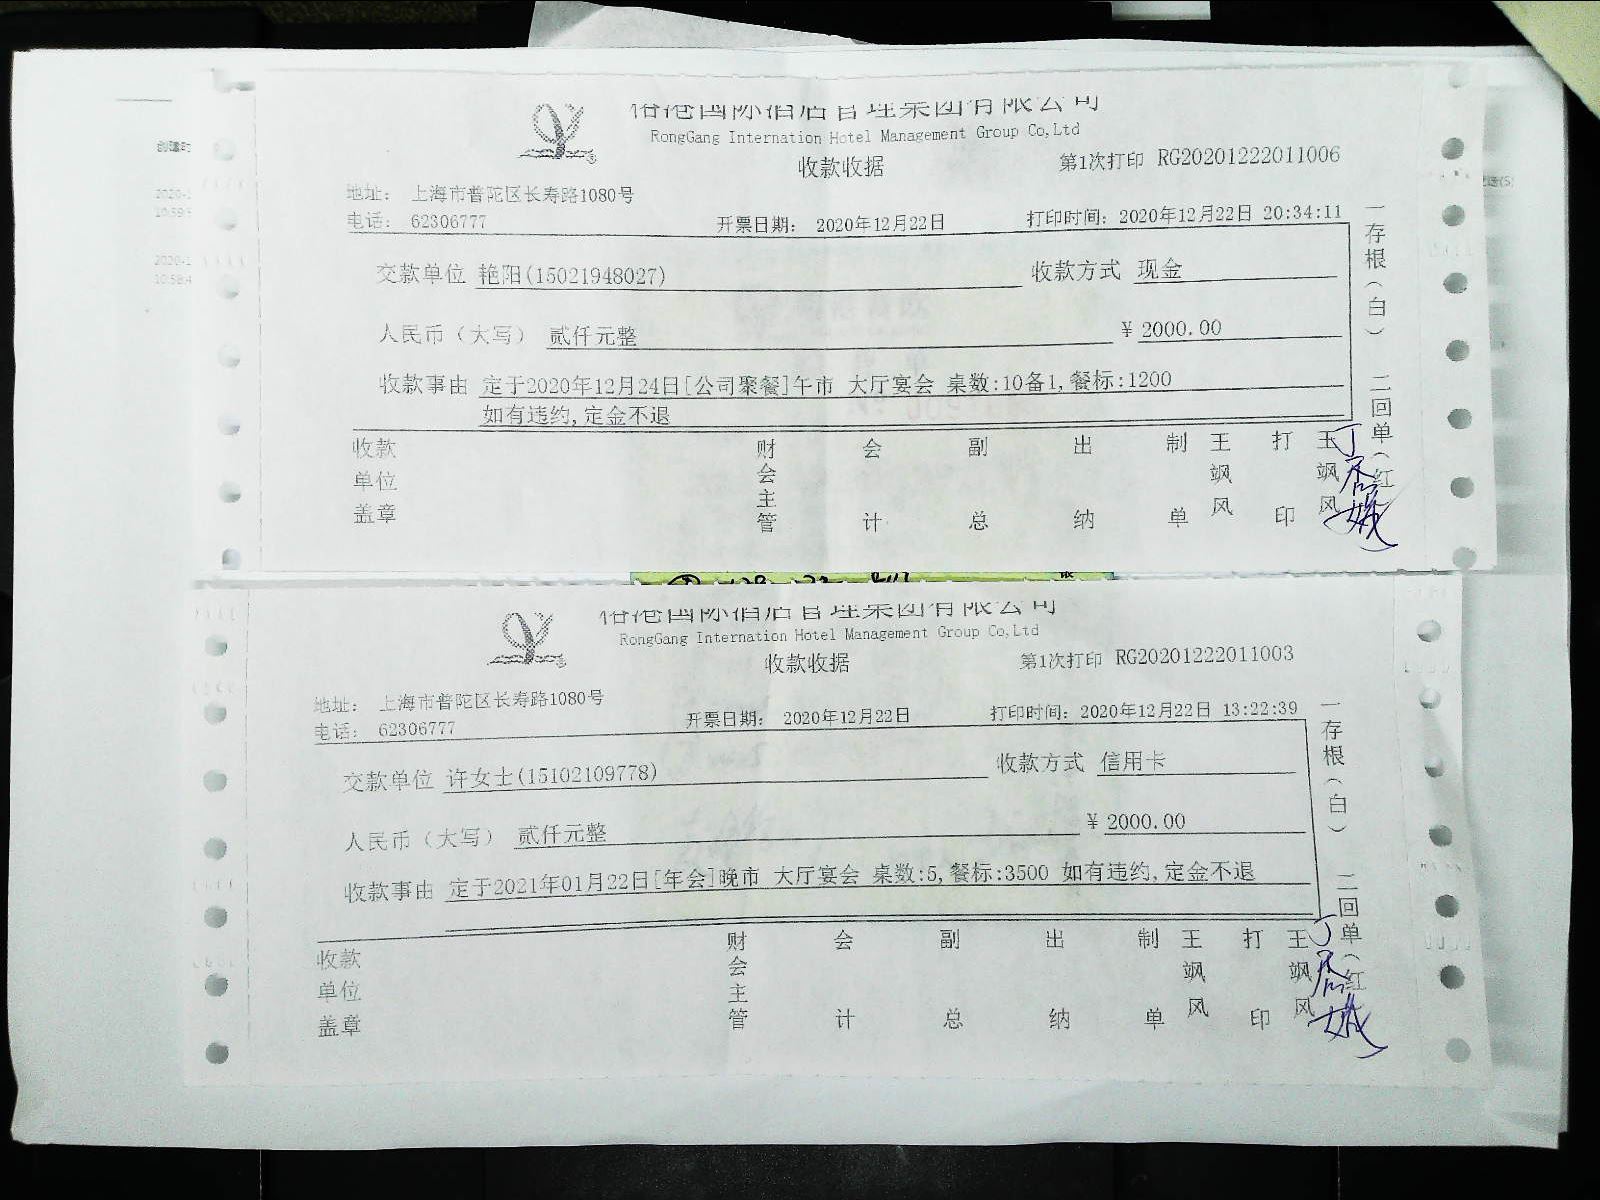 创建时
2020-1
10:59:5
2020-1
10:58:4
国际酒店管理集团有限公司
RongGang Internation Hotel Management Group Co,Ltd
收款收据
第1次打印 RG20201222011006
地址： 上海市普陀区长寿路1080号
电话： 62306777
开票日期： 2020年12月22日
打印时间：2020年12月22日 20:34:11
交款单位 艳阳(15021948027)
收款方式 现金
人民币（大写） 贰仟元整
¥ 2000.00
收款事由 定于2020年12月24日[公司聚餐]午市 大厅宴会 桌数:10备1,餐标:1200
如有违约,定金不退
收款单位盖章
财会主管
会计
副总
出纳
制单
王飒风
打印
王飒风
一存根（白） 二回单（红
国际酒店管理集团有限公司
RongGang Internation Hotel Management Group Co,Ltd
收款收据
第1次打印 RG20201222011003
地址： 上海市普陀区长寿路1080号
电话： 62306777
开票日期： 2020年12月22日
打印时间：2020年12月22日 13:22:39
交款单位 许女士(15102109778)
收款方式 信用卡
人民币（大写） 贰仟元整
¥ 2000.00
收款事由 定于2021年01月22日[年会]晚市 大厅宴会 桌数:5,餐标:3500 如有违约,定金不退
收款单位盖章
财会主管
会计
副总
出纳
制单
王飒风
打印
王飒风
一存根（白） 二回单（红